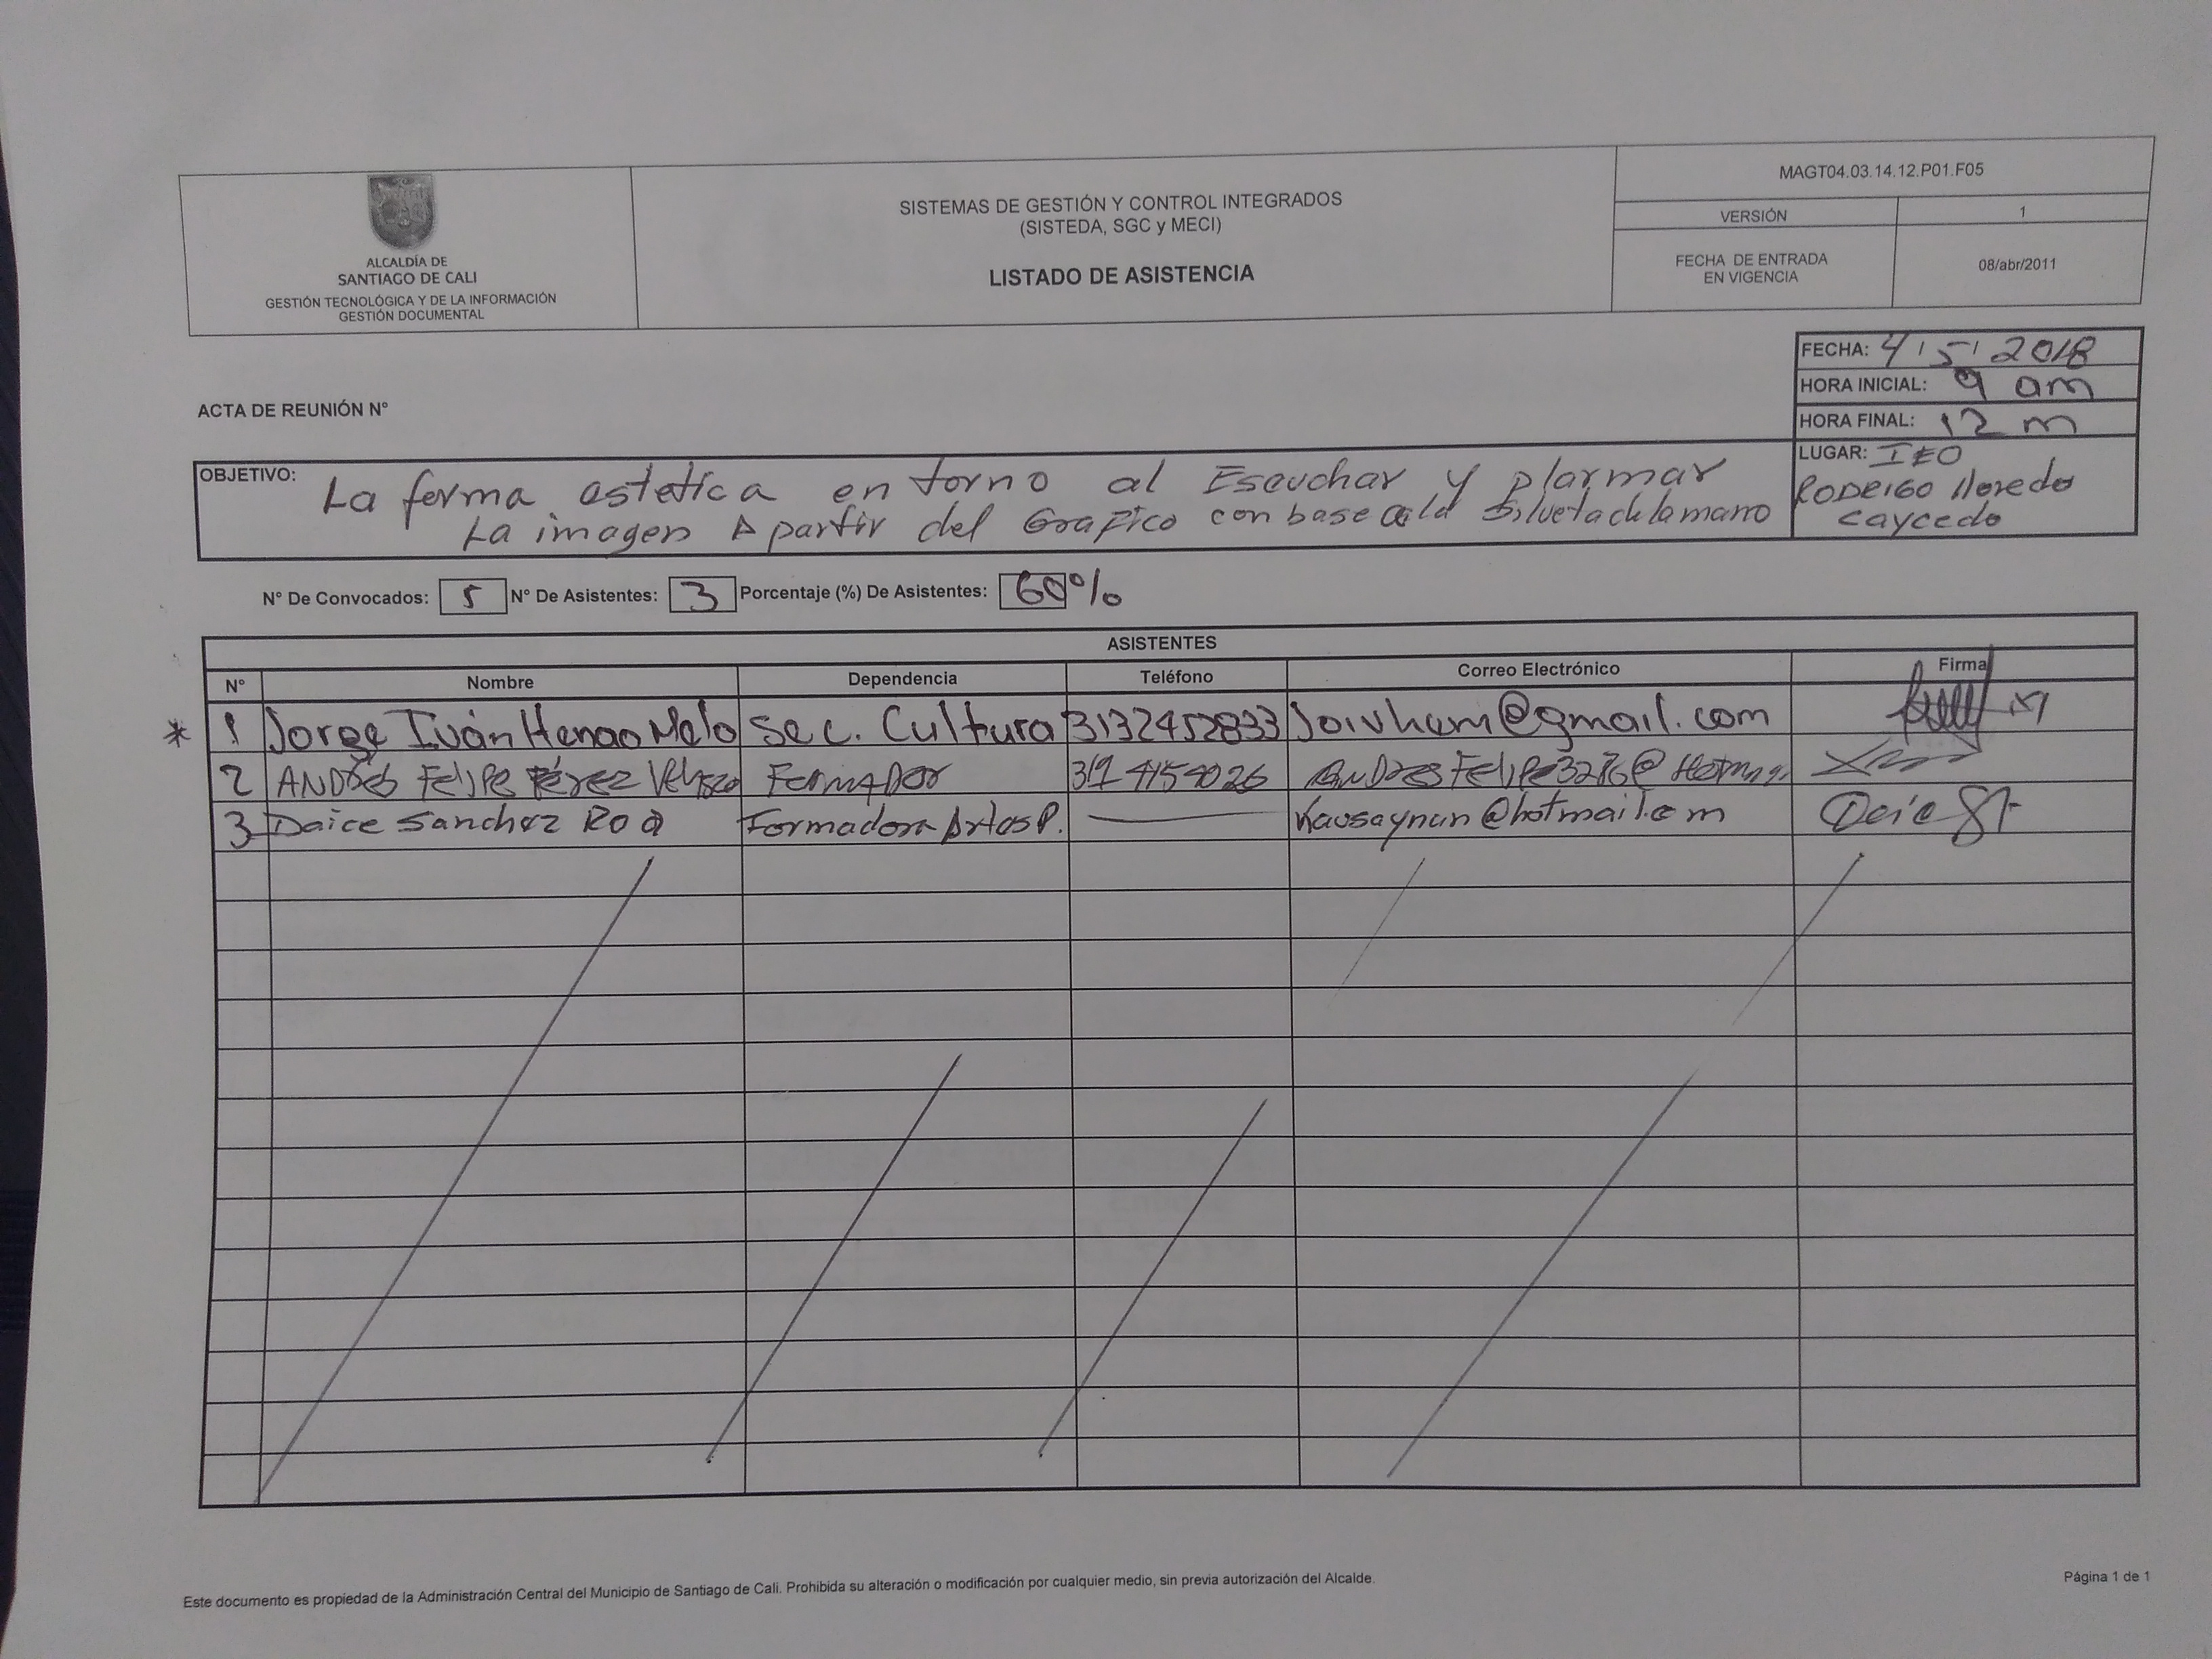 ALCALDÍA DE
SANTIAGO DE CALI
GESTIÓN TECNOLÓGICA Y DE LA INFORMACIÓN
GESTIÓN DOCUMENTAL
SISTEMAS DE GESTIÓN Y CONTROL INTEGRADOS
(SISTEDA, SGC y MECI)
LISTADO DE ASISTENCIA
MAGT04.03.14.12.P01.F05
VERSIÓN 1
FECHA DE ENTRADA
EN VIGENCIA
08/abr/2011
FECHA: 4 / 5 / 2018
HORA INICIAL: 9 am
HORA FINAL: 12 m
LUGAR: IEO
RODRIGO lloredo
Caycedo
ACTA DE REUNIÓN N°
OBJETIVO: La forma astetica en torno al Escuchar y plasmar
La imagen A partir del Grafico con base a la Silueta de la mano
N° De Convocados: 5 N° De Asistentes: 3 Porcentaje (%) De Asistentes: 60%
ASISTENTES
N° Nombre Dependencia Teléfono Correo Electrónico Firma
* 1 Jorge Iván Henao Melo Sec. Cultura 3132452833 Joivhem@gmail.com
2 ANDRÉS FELIPE PÉREZ Velasco FormADOR
3 Daice Sanchez Formadora Artes P. Kausaynan@hotmail.com
Este documento es propiedad de la Administración Central del Municipio de Santiago de Cali. Prohibida su alteración o modificación por cualquier medio, sin previa autorización del Alcalde.
Página 1 de 1